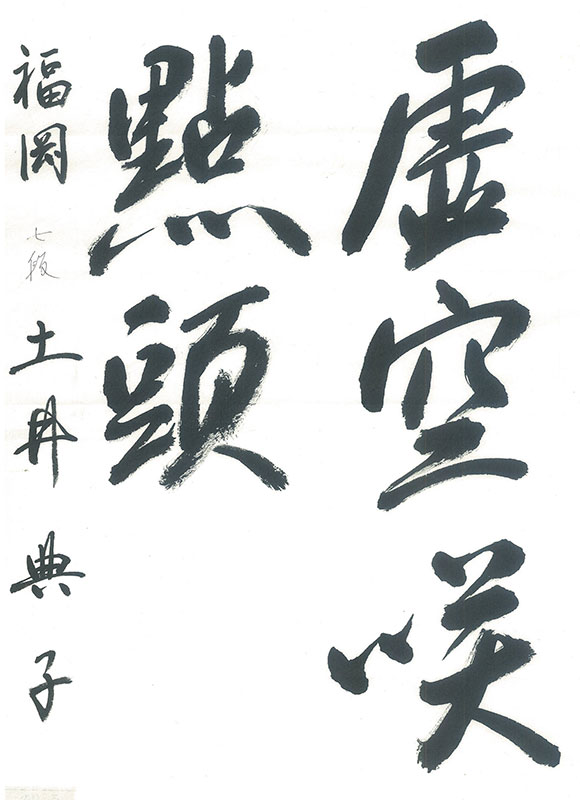 虚空咲
點頭
福岡 七段 土井典子